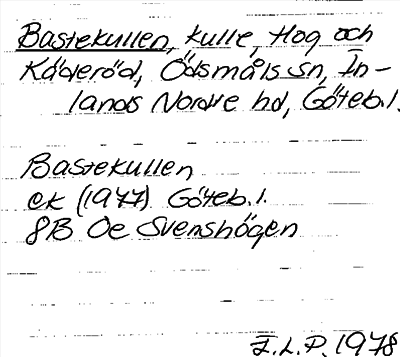 Bastekullen, kulle, Hög och
Käderöd, Ödsmåls sn, In-
lands Nordre hd, Göteb.l.
Bastekullen
ek (1977) Göteb.l.
8B Oe Svenshögen
F.L.P. 1978